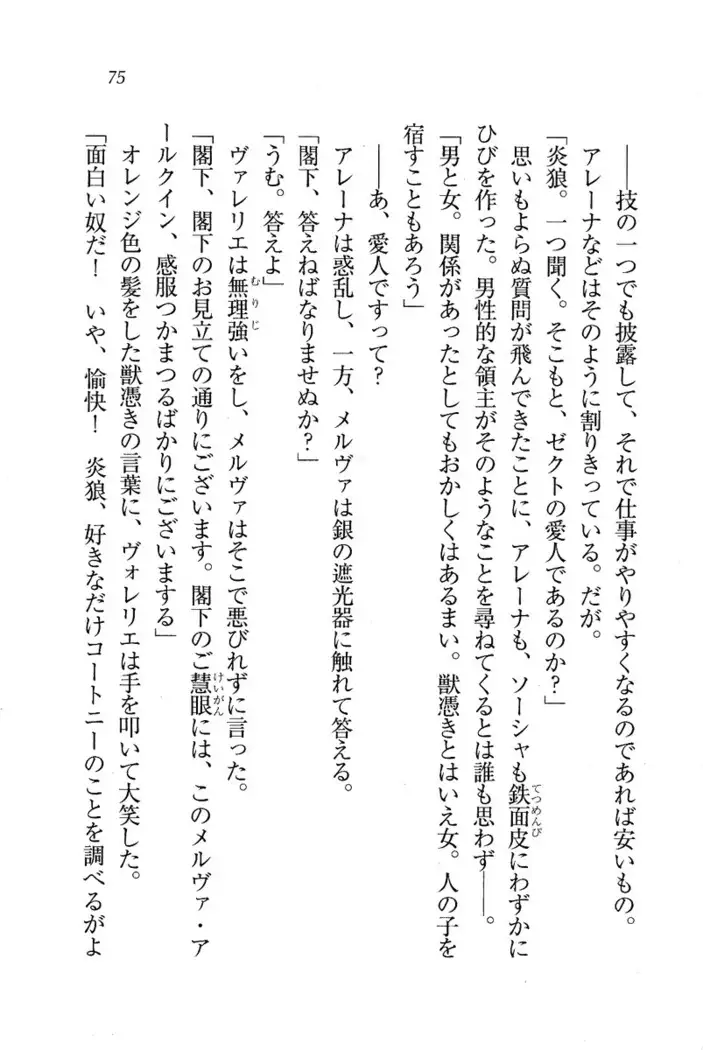 75
――技の一つでも披露して、それで仕事がやりやすくなるのであれば安いもの。
アレーナなどはそのように割りきっている。だが。
「炎狼。一つ聞く。そこもと、ゼクトの愛人であるのか?」
思いもよらぬ質問が飛んできたことに、アレーナも、ソーシャも鉄面皮にわずかに
ひびを作った。男性的な領主がそのようなことを尋ねてくるとは誰も思わず――。
「男と女。関係があったとしてもおかしくはあるまい。獣憑きとはいえ女。人の子を
宿すこともあろう」
――あ、愛人ですって?
アレーナは惑乱し、一方、メルヴァは銀の遮光器に触れて答える。
「閣下、答えねばなりませぬか?」
「うむ。答えよ」
ヴァレリエは無理強いをし、メルヴァはそこで悪びれずに言った。
「閣下、閣下のお見立ての通りにございます。閣下のご慧眼には、このメルヴァ・ア
ールクイン、感服つかまつるばかりにございまする」
オレンジ色の髪をした獣憑きの言葉に、ヴォレリエは手を叩いて大笑した。
「面白い奴だ! いや、愉快! 炎狼、好きなだけコートニーのことを調べるがよ
てつめんぴ
むりじ
けいがん